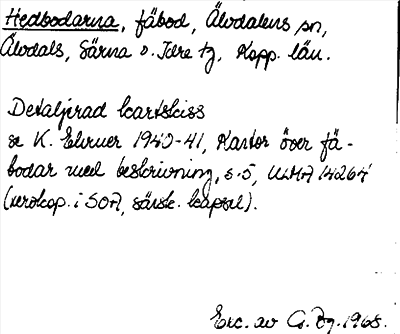 Hedbodarna, fäbod, Älvdalens sn,
Älvdals, Särna o. Idre tg, Kopp. län.
Detaljerad kartskiss
se K. Ehrner 1940-41, Kartor över fä-
bodar med beskrivning, s. 5, ULMA 14264
(xerokop. i SOA, särsk. kapsel).
Exc. av G. Bg. 1968.